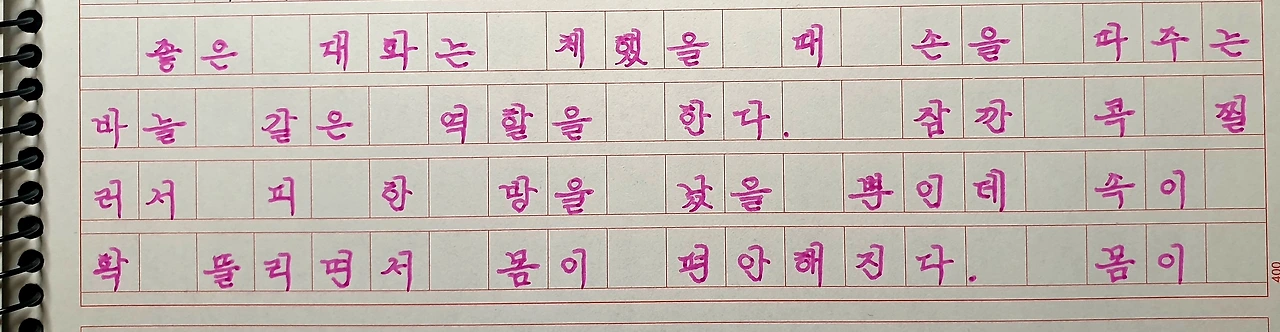 좋은 대화는 체했을 때 손을 따주는
바늘 같은 역할을 한다. 잠깐 콕 찔
러서 피 한 방울 났을 뿐인데 속이
확 뚫리면서 몸이 편안해진다. 몸이
400